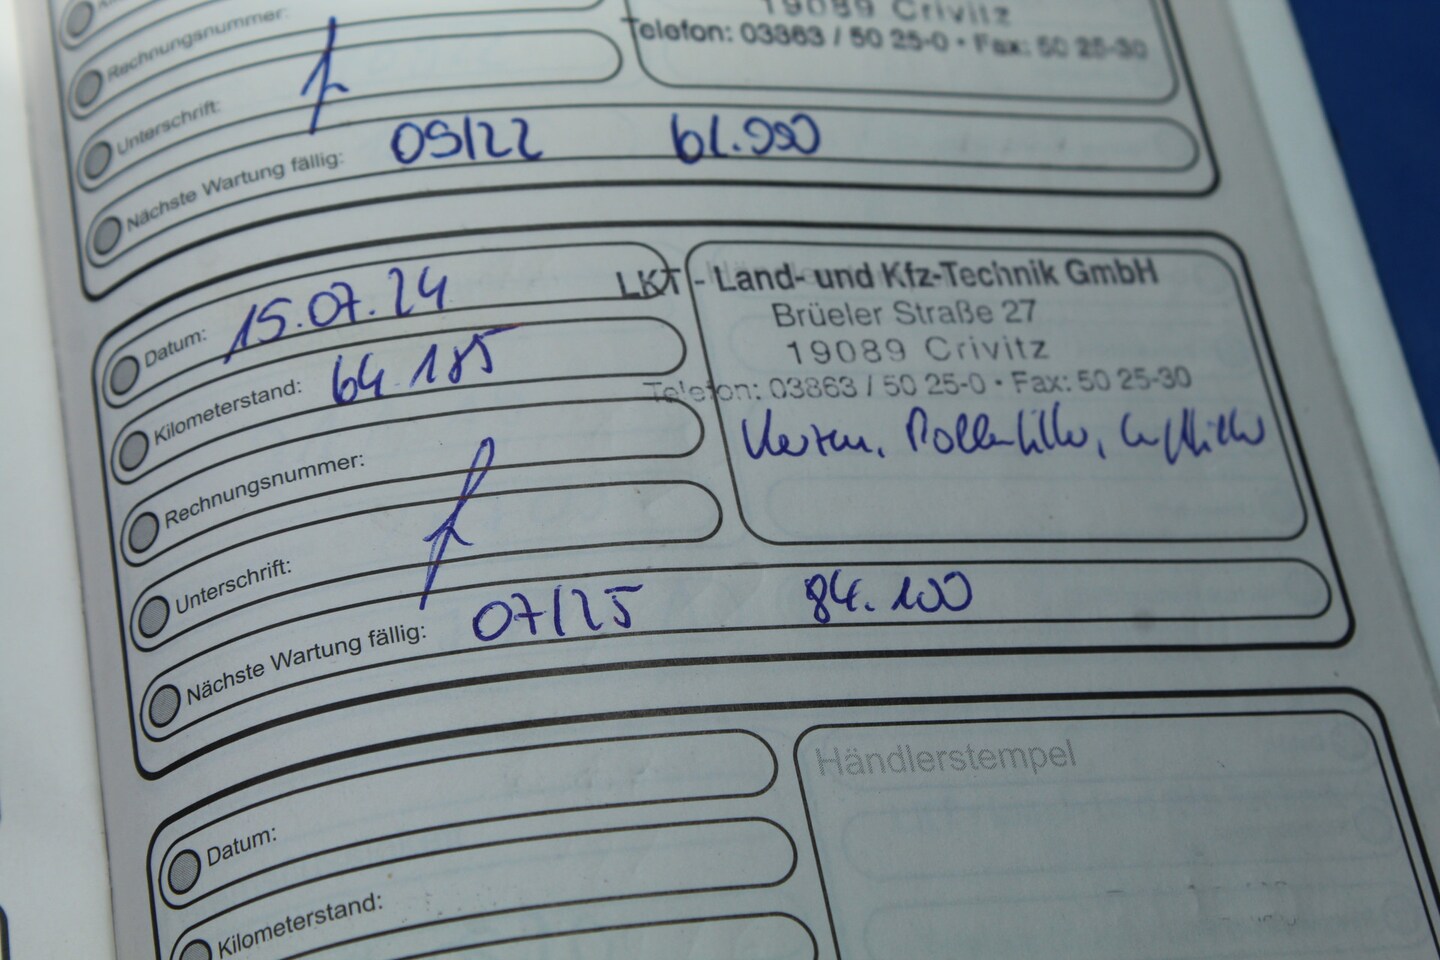 19089 Crivitz
Telefon: 03863 / 50 25-0 • Fax: 50 25-30
Rechnungsnummer:
Unterschrift:
Nächste Wartung fällig: 09/22 61.990
LKT - Land- und Kfz-Technik GmbH
Brüeler Straße 27
19089 Crivitz
Telefon: 03863 / 50 25-0 • Fax: 50 25-30
Kerzen, Pollenfilter, Luftfilter
Datum: 15.07.24
Kilometerstand: 64.185
Rechnungsnummer:
Unterschrift:
Nächste Wartung fällig: 07/25 84.100
Händlerstempel
Datum:
Kilometerstand: